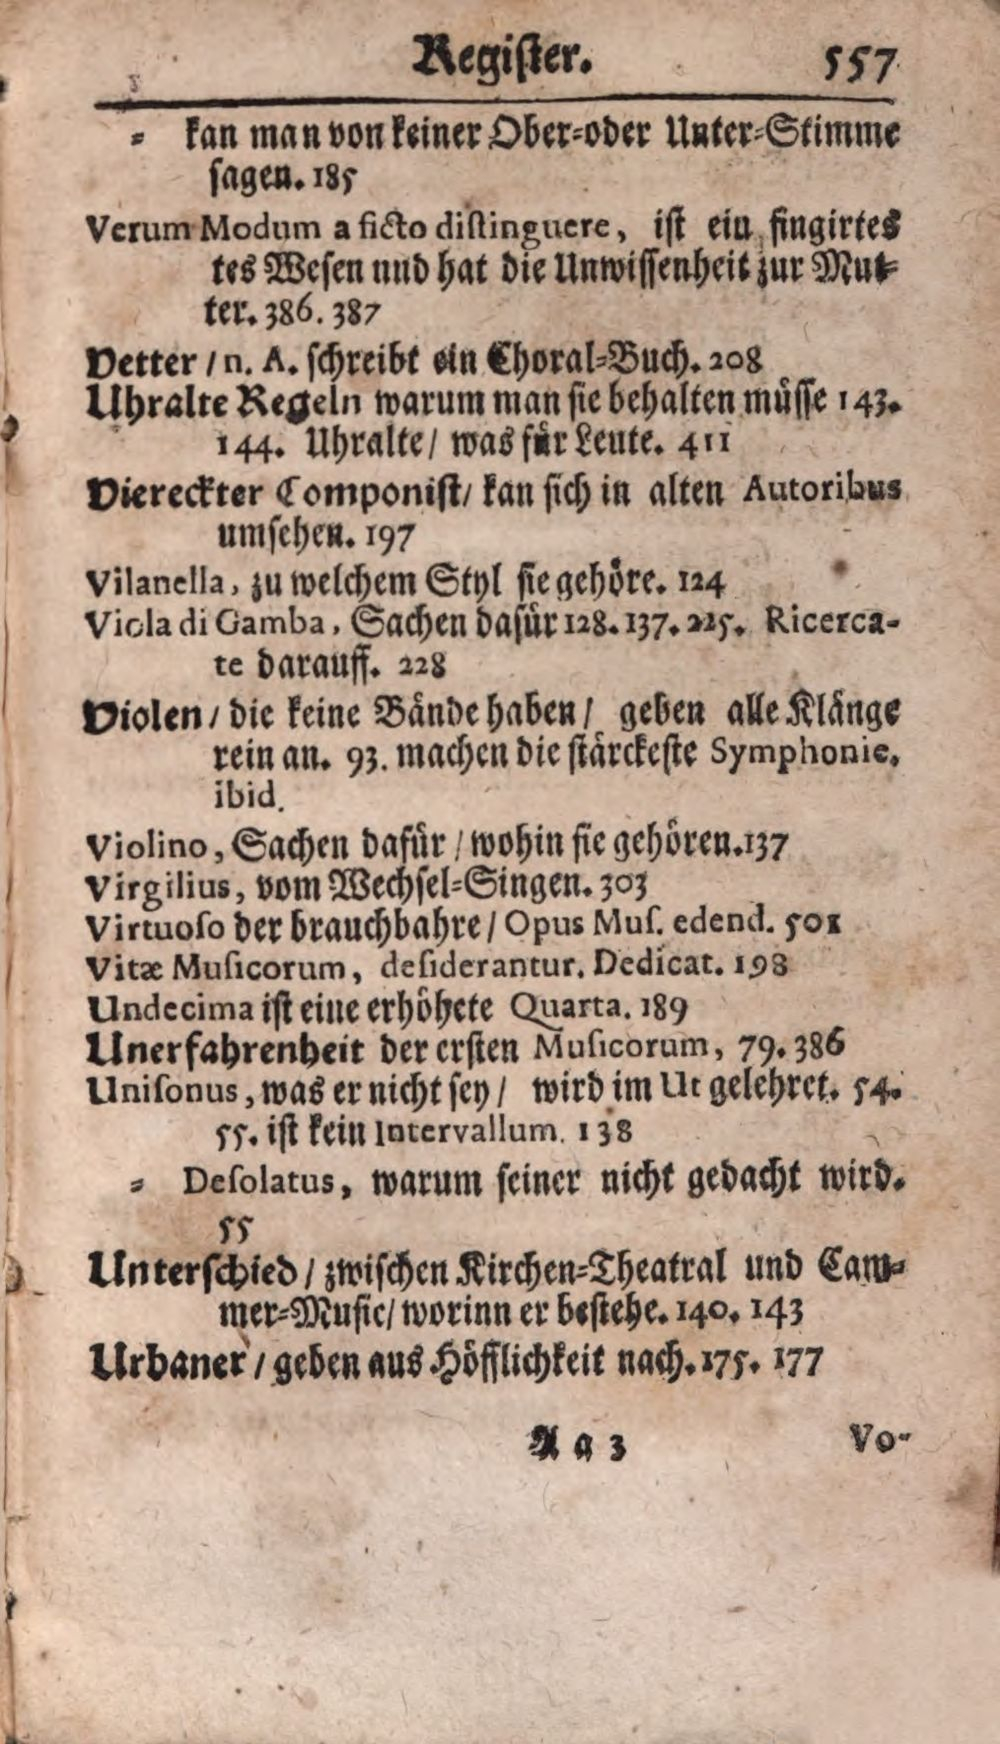 Regiſter. 557
⸗ kan man von keiner Ober⸗oder Unter⸗Stimme
ſagen. 185
Verum Modum a ficto diſtinguere, iſt ein fingirtes
tes Weſen und hat die Unwiſſenheit zur Mut⸗
ter. 386. 387
Vetter / n. A. ſchreibt ein Choral⸗Buch. 208
Uhralte Regeln warum man ſie behalten müſſe 143.
144. Uhralte / was für Leute. 411
Viereckter Componiſt / kan ſich in alten Autoribus
umſehen. 197
Vilanella, zu welchem Styl ſie gehöre. 124
Viola di Gamba, Sachen dafür 128. 137. 225. Ricerca-
te darauff. 228
Violen / die keine Bände haben / geben alle Klänge
rein an. 93. machen die ſtärckeſte Symphonie.
ibid.
Violino, Sachen dafür / wohin ſie gehören. 137
Virgilius, vom Wechſel⸗Singen. 303
Virtuoſo der brauchbahre / Opus Muſ. edend. 501
Vitæ Muſicorum, deſiderantur. Dedicat. 198
Undecima iſt eine erhöhete Quarta. 189
Unerfahrenheit der erſten Muſicorum, 79. 386
Uniſonus, was er nicht ſey / wird im Ut gelehret. 54.
55. iſt kein Intervallum. 138
⸗ Deſolatus, warum ſeiner nicht gedacht wird.
55
Unterſchied / zwiſchen Kirchen⸗Theatral und Cam⸗
mer⸗Muſic / worinn er beſtehe. 140. 143
Urbaner / geben aus Höfflichkeit nach. 175. 177
A a 3 Vo-